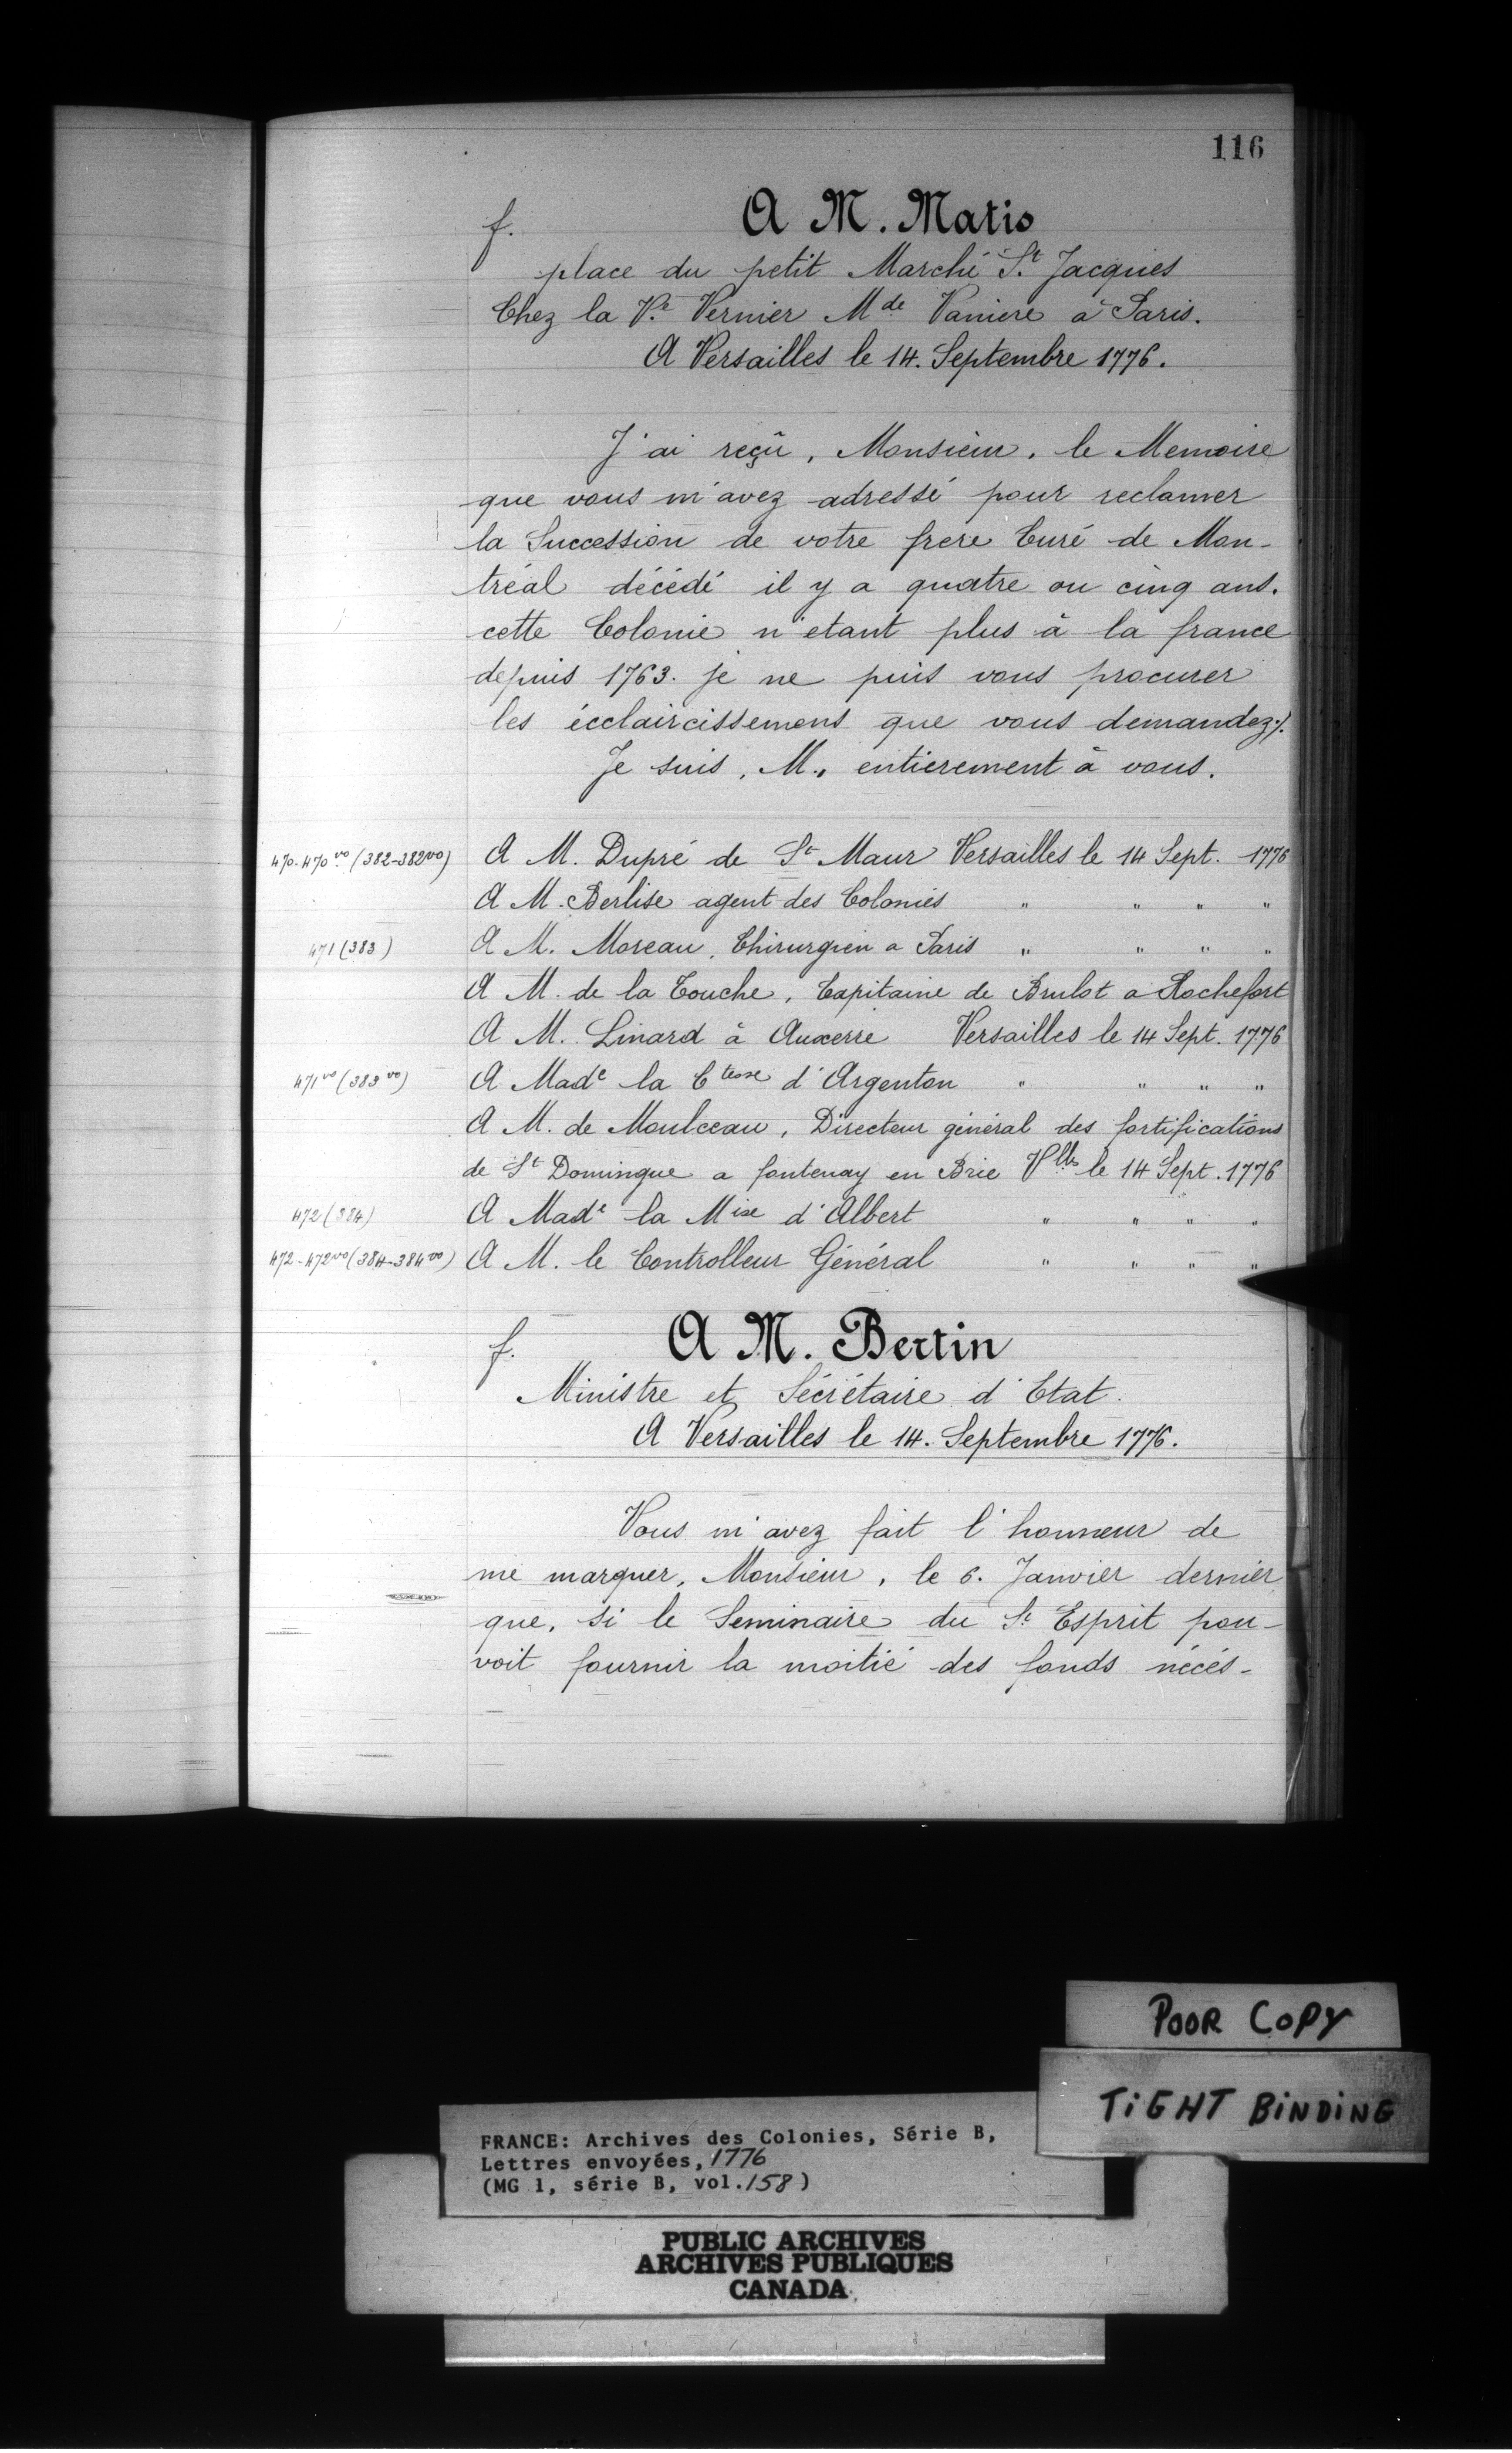 116
f. A M. Matis
place du petit Marché St. Jacques
Chez la Ve. Vernier Mde Vaniere à Paris.
A Versailles le 14. Septembre 1776.
J'ai reçû, Monsieur, le Memoire
que vous m'avez adressé pour reclamer
la Succession de votre frere Curé de Mon-
tréal décédé il y a quatre ou cinq ans.
cette Colonie n'etant plus à la france
depuis 1763. je ne puis vous procurer
les écclaircissemens que vous demandez./.
Je suis, M., entierement à vous.
470-470vo (382-382vo) A M. Dupré de St Maur Versailles le 14 Sept. 1776
A M. Berlise agent des Colonies " " " "
471 (383) A M. Moreau, Chirurgien a Paris " " " "
A M. de la Touche, Capitaine de Brulot a Rochefort
A M. Linard à Auxerre Versailles le 14 Sept. 1776
471vo (383vo) A Made la Ctesse d'Argenton " " " "
A M. de Moulceau, Directeur général des fortifications
de St Domingue a fontenay en Brie Vlles le 14 Sept. 1776
472 (384) A Made la Mise d'Albert " " " "
472-472vo (384-384vo) A M. le Controlleur Général " " " "
f. A M. Bertin
Ministre et Sécrétaire d'Etat.
A Versailles le 14. Septembre 1776.
Vous m'avez fait l'honneur de
me marquer, Monsieur, le 6. Janvier dernier
que, si le Seminaire du St. Esprit pou-
voit fournir la moitié des fonds nécés-
POOR COPY
TIGHT BINDING
FRANCE: Archives des Colonies, Série B,
Lettres envoyées, 1776
(MG 1, série B, vol. 158)
PUBLIC ARCHIVES
ARCHIVES PUBLIQUES
CANADA